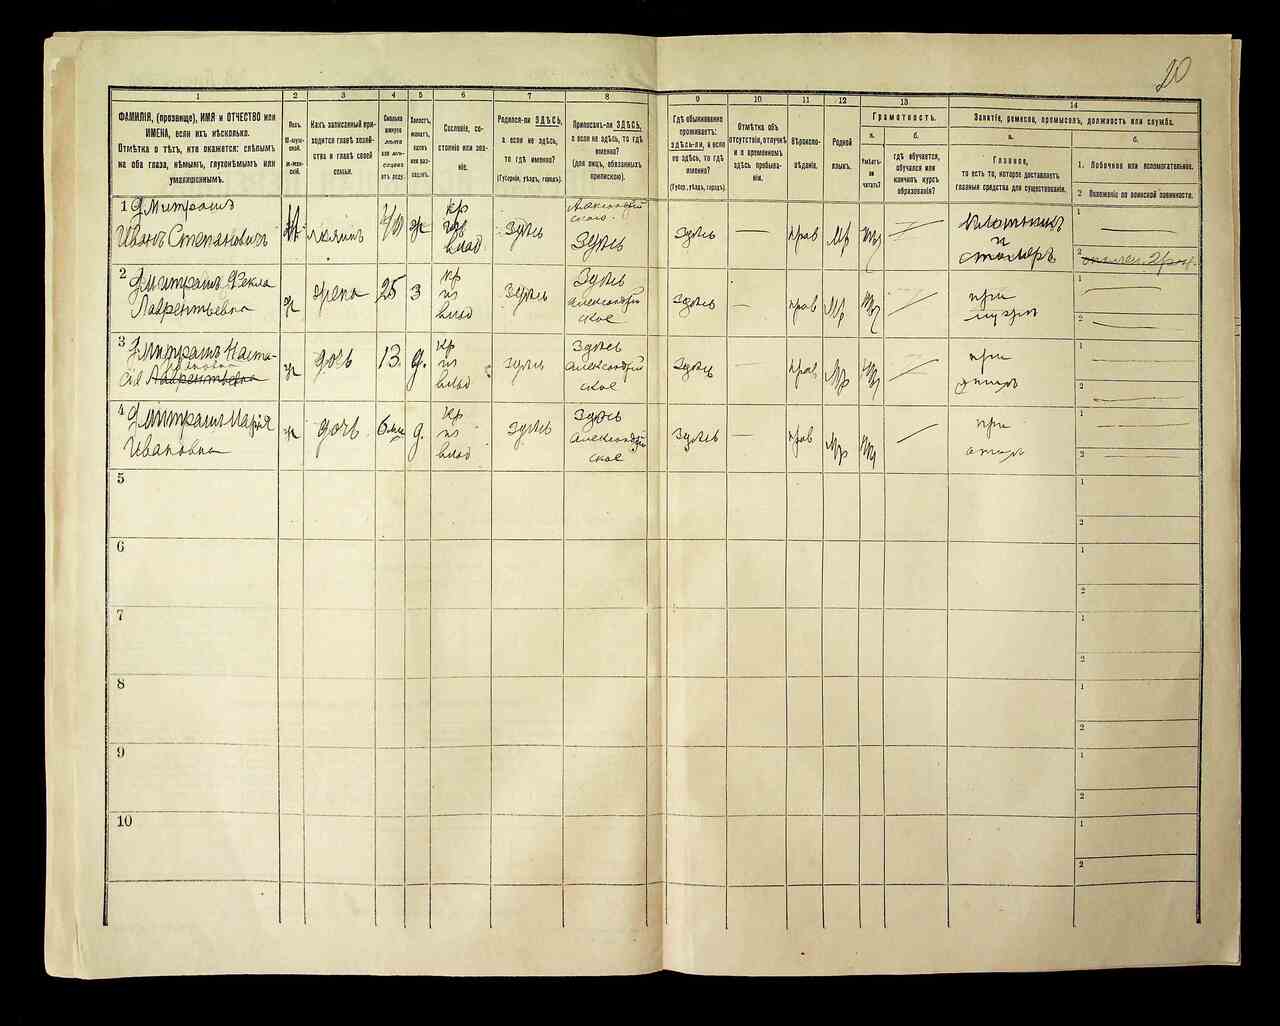 20
1 2 3 4 5 6 7 8 9 10 11 12 13 14
ФАМИЛІЯ, (прозвище), ИМЯ и ОТЧЕСТВО или
ИМЕНА, если ихъ нѣсколько.
Отмѣтка о тѣхъ, кто окажется: слѣпымъ
на оба глаза, нѣмымъ, глухонѣмымъ или
умалишеннымъ.
Полъ.
М-муж-
ской.
ж-жен-
скій.
Какъ записанный при-
ходится главѣ хозяй-
ства и главѣ своей
семьи.
Сколько
минуло
лѣтъ
или мѣ-
сяцевъ
отъ роду.
Холостъ,
женатъ,
вдовъ
или раз-
веденъ.
Сословіе, со-
стояніе или зва-
ніе.
Родился-ли ЗДѢСЬ,
а если не здѣсь,
то гдѣ именно?
(Губернія, уѣздъ, городъ).
Приписанъ-ли ЗДѢСЬ,
а если не здѣсь, то гдѣ
именно?
(для лицъ, обязанныхъ
припискою).
Гдѣ обыкновенно
проживаетъ:
ЗДѢСЬ-ли, а если
не здѣсь, то гдѣ
именно?
(Губер., уѣздъ, городъ).
Отмѣтка объ
отсутствіи, отлучкѣ
и о временномъ
здѣсь пребыва-
ніи.
Вѣроиспо-
вѣданіе.
Родной
языкъ.
Грамотность.
а.
Умѣетъ-
ли
читать?
б.
гдѣ обучается,
обучался или
кончилъ курсъ
образованія?
Занятіе, ремесло, промыселъ, должность или служба.
а.
Главное,
то есть то, которое доставляетъ
главныя средства для существованія.
б.
1. Побочное или вспомогательное.
2 Положеніе по воинской повинности.
1 Дмитрашъ
Иванъ Степановичъ
М
хозяинъ
40
ж
кр
влад
здѣсь
Здѣсь
здѣсь
—
прав
Мр
плотникъ
и
столяръ
1
2
2 Дмитрашъ Фекла
Лаврентьевна
ж
жена
25
З
кр
из
влад
здѣсь
Здѣсь
Александрій
ское
здѣсь
—
прав
Мр
при
мужѣ
1
2
3 Дмитрашъ Наста-
сія Лаврентьевна
Ивановна
ж
дочь
13.
д.
кр
из
влад
здѣсь
Здѣсь
Александрій
ское
Здѣсь
—
прав
Мр
при
отцѣ
1
2
4 Дмитрашъ Марія
Ивановна
ж
дочь
6 мц
д.
кр
из
влад
здѣсь
Здѣсь
Александрій
ское
здѣсь
—
прав
Мр
при
отцѣ
1
2
5
1
2
6
1
2
7
1
2
8
1
2
9
1
2
10
1
2